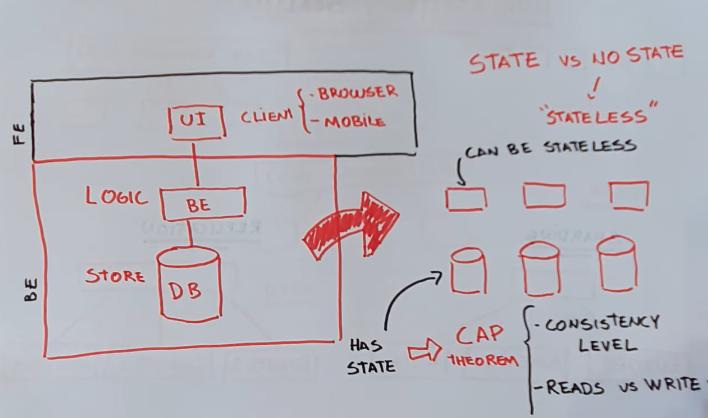 FE
UI
CLIENT
- BROWSER
- MOBILE
BE
LOGIC
BE
STORE
DB
STATE VS NO STATE
"STATELESS"
CAN BE STATELESS
HAS
STATE
CAP
THEOREM
- CONSISTENCY
LEVEL
- READS VS WRITE